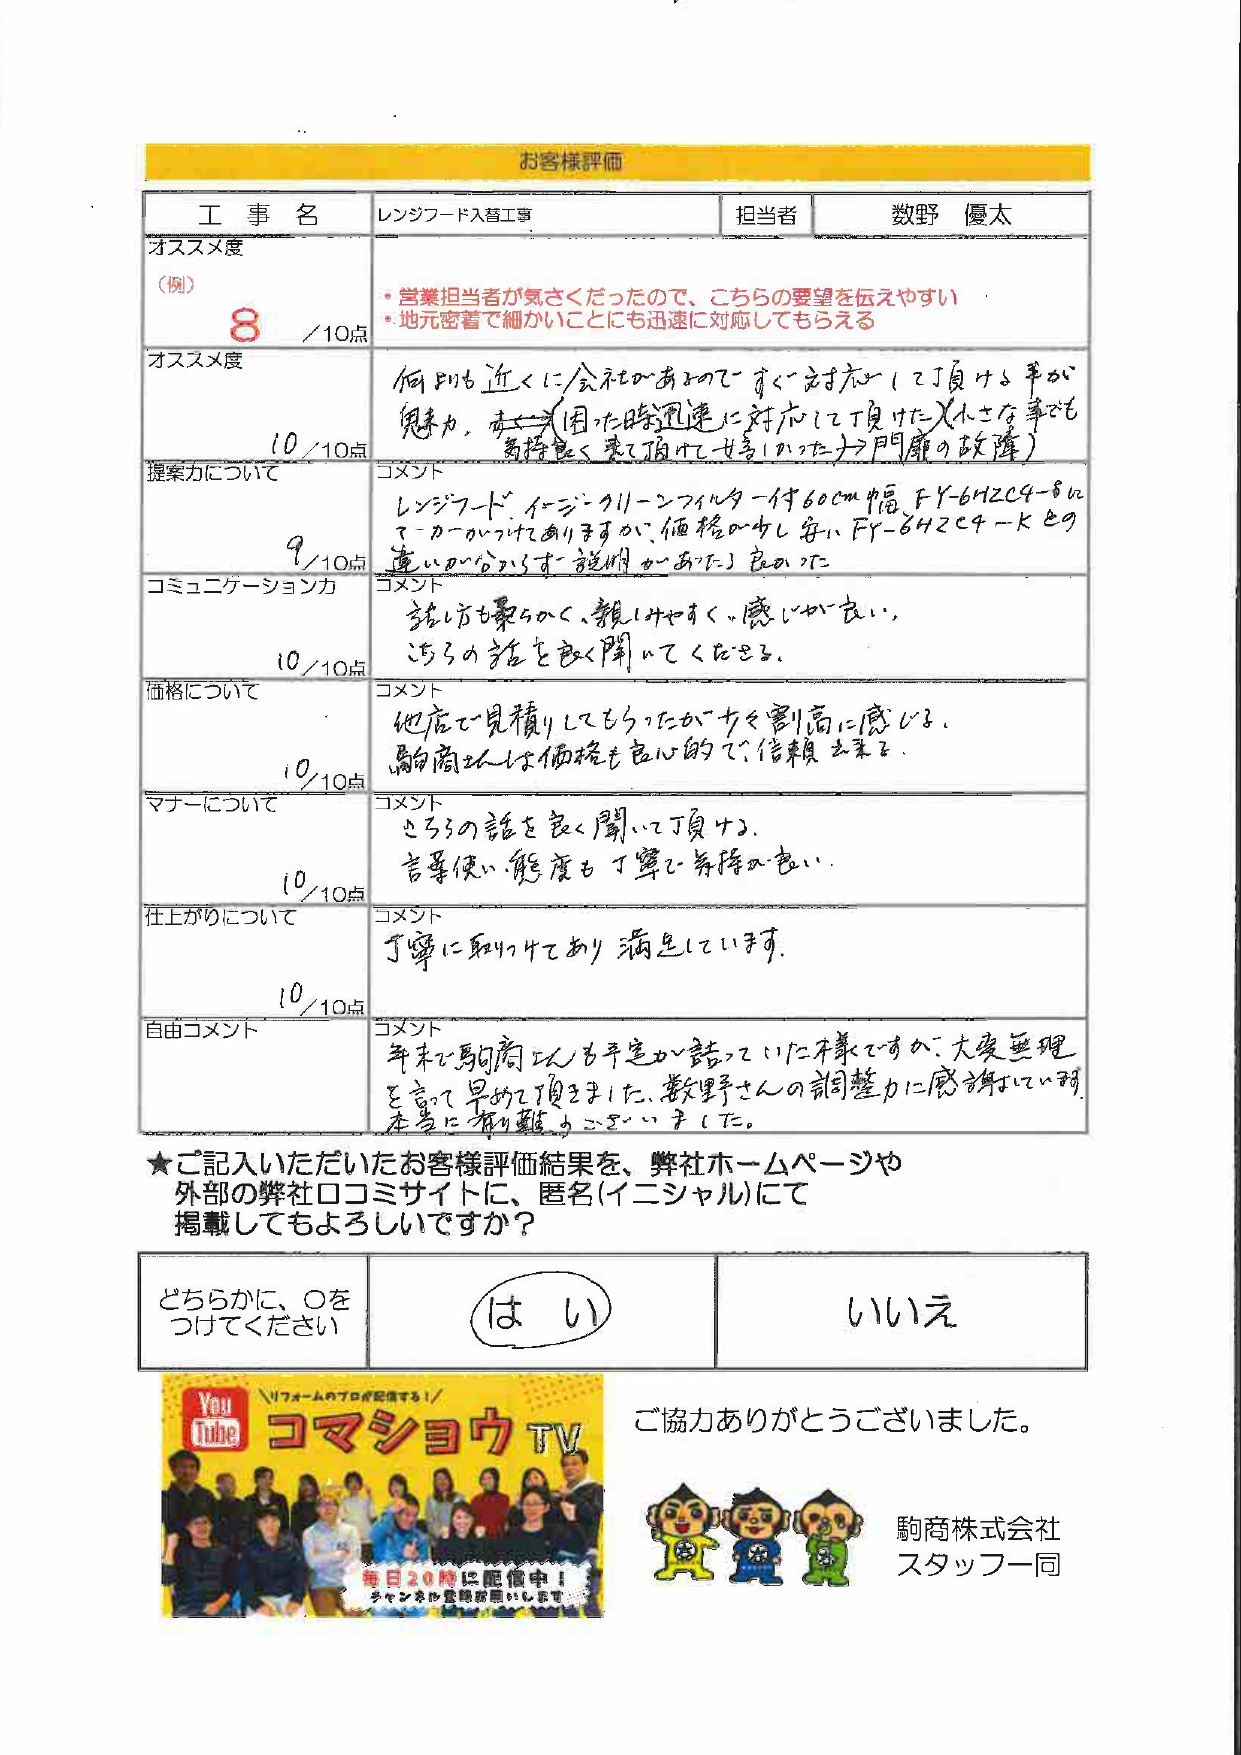 お客様評価
工 事 名 レンジフード入替工事 担当者 数野 優太
オススメ度
（例）
8 /10点
・営業担当者が気さくだったので、こちらの要望を伝えやすい
・地元密着で細かいことにも迅速に対応してもらえる
オススメ度
10/10点
何よりも近くに会社があるのですぐ対応して頂ける事が
魅力。(困った時迅速に対応して頂けた)(小さな事でも
気持良く来て頂けて嬉しかった→門扉の故障)
提案力について
9/10点
コメント
レンジフード イージークリーンフィルター付60cm幅 FY-6HZC4-Sに
マーカーがつけてありますが、価格が少し安い FY-6HZC4-Kとの
違いが分からず説明があったら良かった
コミュニケーション力
10/10点
コメント
話し方も柔らかく、親しみやすく、感じが良い。
こちらの話を良く聞いてくださる。
価格について
10/10点
コメント
他店で見積りしてもらったが少々割高に感じる。
駒商さんは価格も良心的で、信頼出来る。
マナーについて
10/10点
コメント
こちらの話を良く聞いて頂ける。
言葉使い、態度も丁寧で気持が良い。
仕上がりについて
10/10点
コメント
丁寧に取りつけてあり満足しています。
自由コメント
コメント
年末で駒商さんも予定が詰っていた様ですが、大変無理
を言って早めて頂きました。数野さんの調整力に感謝しています。
本当に有り難うございました。
★ご記入いただいたお客様評価結果を、弊社ホームページや
外部の弊社口コミサイトに、匿名(イニシャル)にて
掲載してもよろしいですか？
どちらかに、○を
つけてください
は い
いいえ
You
Tube
＼リフォームのプロが配信する！／
コマショウTV
毎日20時に配信中！
チャンネル登録お願いします
ご協力ありがとうございました。
駒商株式会社
スタッフ一同